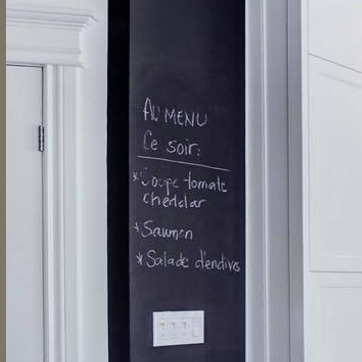 AU MENU
Ce soir:
* Soupe tomate
cheddar
* Saumon
* Salade d'endives